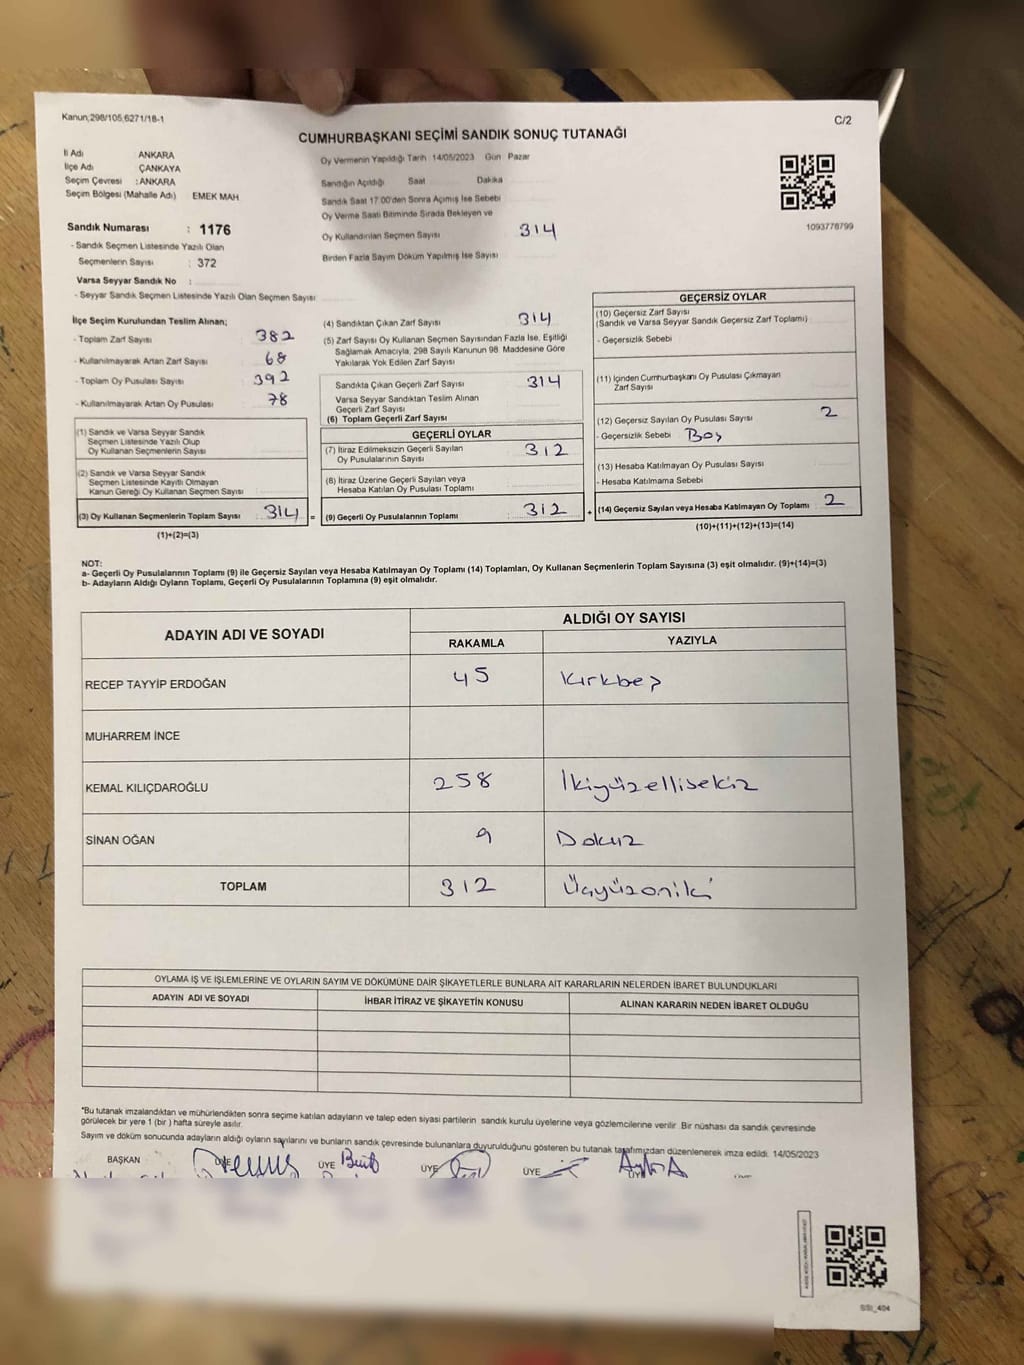 Kanun;298/105,6271/18-1
C/2
CUMHURBAŞKANI SEÇİMİ SANDIK SONUÇ TUTANAĞI
İl Adı ANKARA
İlçe Adı ÇANKAYA
Seçim Çevresi : ANKARA
Seçim Bölgesi (Mahalle Adı) EMEK MAH
Oy Vermenin Yapıldığı Tarih :14/05/2023 Gün Pazar
Sandığın Açıldığı Saat Dakika
Sandık Saat 17.00'den Sonra Açımış İse Sebebi
Oy Verme Saati Bitiminde Sırada Bekleyen ve
Oy Kullandırılan Seçmen Sayısı 314
Birden Fazla Sayım Döküm Yapılmış İse Sayısı
1093776799
Sandık Numarası : 1176
- Sandık Seçmen Listesinde Yazılı Olan
Seçmenlerin Sayısı : 372
Varsa Seyyar Sandık No :
- Seyyar Sandık Seçmen Listesinde Yazılı Olan Seçmen Sayısı:
İlçe Seçim Kurulundan Teslim Alınan;
- Toplam Zarf Sayısı 382
- Kullanılmayarak Artan Zarf Sayısı 68
- Toplam Oy Pusulası Sayısı 392
- Kullanılmayarak Artan Oy Pusulası 78
(1) Sandık ve Varsa Seyyar Sandık
Seçmen Listesinde Yazılı Olup
Oy Kullanan Seçmenlerin Sayısı
(2) Sandık ve Varsa Seyyar Sandık
Seçmen Listesinde Kayıtlı Olmayan
Kanun Gereği Oy Kullanan Seçmen Sayısı
(3) Oy Kullanan Seçmenlerin Toplam Sayısı 314 =
(1)+(2)=(3)
(4) Sandıktan Çıkan Zarf Sayısı 314
(5) Zarf Sayısı Oy Kullanan Seçmen Sayısından Fazla İse, Eşitliği
Sağlamak Amacıyla, 298 Sayılı Kanunun 98. Maddesine Göre
Yakılarak Yok Edilen Zarf Sayısı
Sandıkta Çıkan Geçerli Zarf Sayısı 314
Varsa Seyyar Sandıktan Teslim Alınan
Geçerli Zarf Sayısı
(6) Toplam Geçerli Zarf Sayısı
GEÇERLİ OYLAR
(7) İtiraz Edilmeksizin Geçerli Sayılan
Oy Pusulalarının Sayısı 312
(8) İtiraz Üzerine Geçerli Sayılan veya
Hesaba Katılan Oy Pusulası Toplamı
(9) Geçerli Oy Pusulalarının Toplamı 312 +
GEÇERSİZ OYLAR
(10) Geçersiz Zarf Sayısı
(Sandık ve Varsa Seyyar Sandık Geçersiz Zarf Toplamı)
- Geçersizlik Sebebi
(11) İçinden Cumhurbaşkanı Oy Pusulası Çıkmayan
Zarf Sayısı
(12) Geçersiz Sayılan Oy Pusulası Sayısı 2
- Geçersizlik Sebebi Boş
(13) Hesaba Katılmayan Oy Pusulası Sayısı
- Hesaba Katılmama Sebebi
(14) Geçersiz Sayılan veya Hesaba Katılmayan Oy Toplamı 2
(10)+(11)+(12)+(13)=(14)
NOT:
a- Geçerli Oy Pusulalarının Toplamı (9) ile Geçersiz Sayılan veya Hesaba Katılmayan Oy Toplamı (14) Toplamları, Oy Kullanan Seçmenlerin Toplam Sayısına (3) eşit olmalıdır. (9)+(14)=(3)
b- Adayların Aldığı Oyların Toplamı, Geçerli Oy Pusulalarının Toplamına (9) eşit olmalıdır.
ADAYIN ADI VE SOYADI ALDIĞI OY SAYISI
RAKAMLA YAZIYLA
RECEP TAYYİP ERDOĞAN 45 Kırkbeş
MUHARREM İNCE
KEMAL KILIÇDAROĞLU 258 İkiyüzellisekiz
SİNAN OĞAN 9 Dokuz
TOPLAM 312 Üçyüzoniki
OYLAMA İŞ VE İŞLEMLERİNE VE OYLARIN SAYIM VE DÖKÜMÜNE DAİR ŞİKAYETLERLE BUNLARA AİT KARARLARIN NELERDEN İBARET BULUNDUKLARI
ADAYIN ADI VE SOYADI İHBAR İTİRAZ VE ŞİKAYETİN KONUSU ALINAN KARARIN NEDEN İBARET OLDUĞU
"Bu tutanak imzalandıktan ve mühürlendikten sonra seçime katılan adayların ve talep eden siyasi partilerin sandık kurulu üyelerine veya gözlemcilerine verilir. Bir nüshası da sandık çevresinde
görülecek bir yere 1 (bir ) hafta süreyle asılır.
Sayım ve döküm sonucunda adayların aldığı oyların sayılarını ve bunların sandık çevresinde bulunanlara duyurulduğunu gösteren bu tutanak tarafımızdan düzenlenerek imza edildi. 14/05/2023
BAŞKAN ÜYE ÜYE ÜYE ÜYE
SSI_404